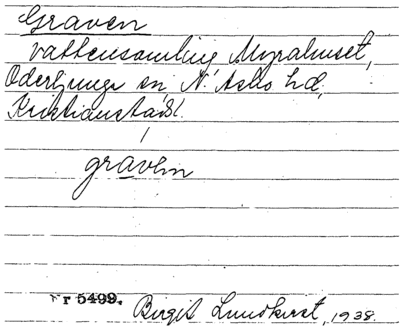 Graven
vattensamling Myrahuset,
Oderljunga sn N. Åsbo hd,
Kristianstads l.
graven
Nr 5499. Birgit Lundkvist, 1938.